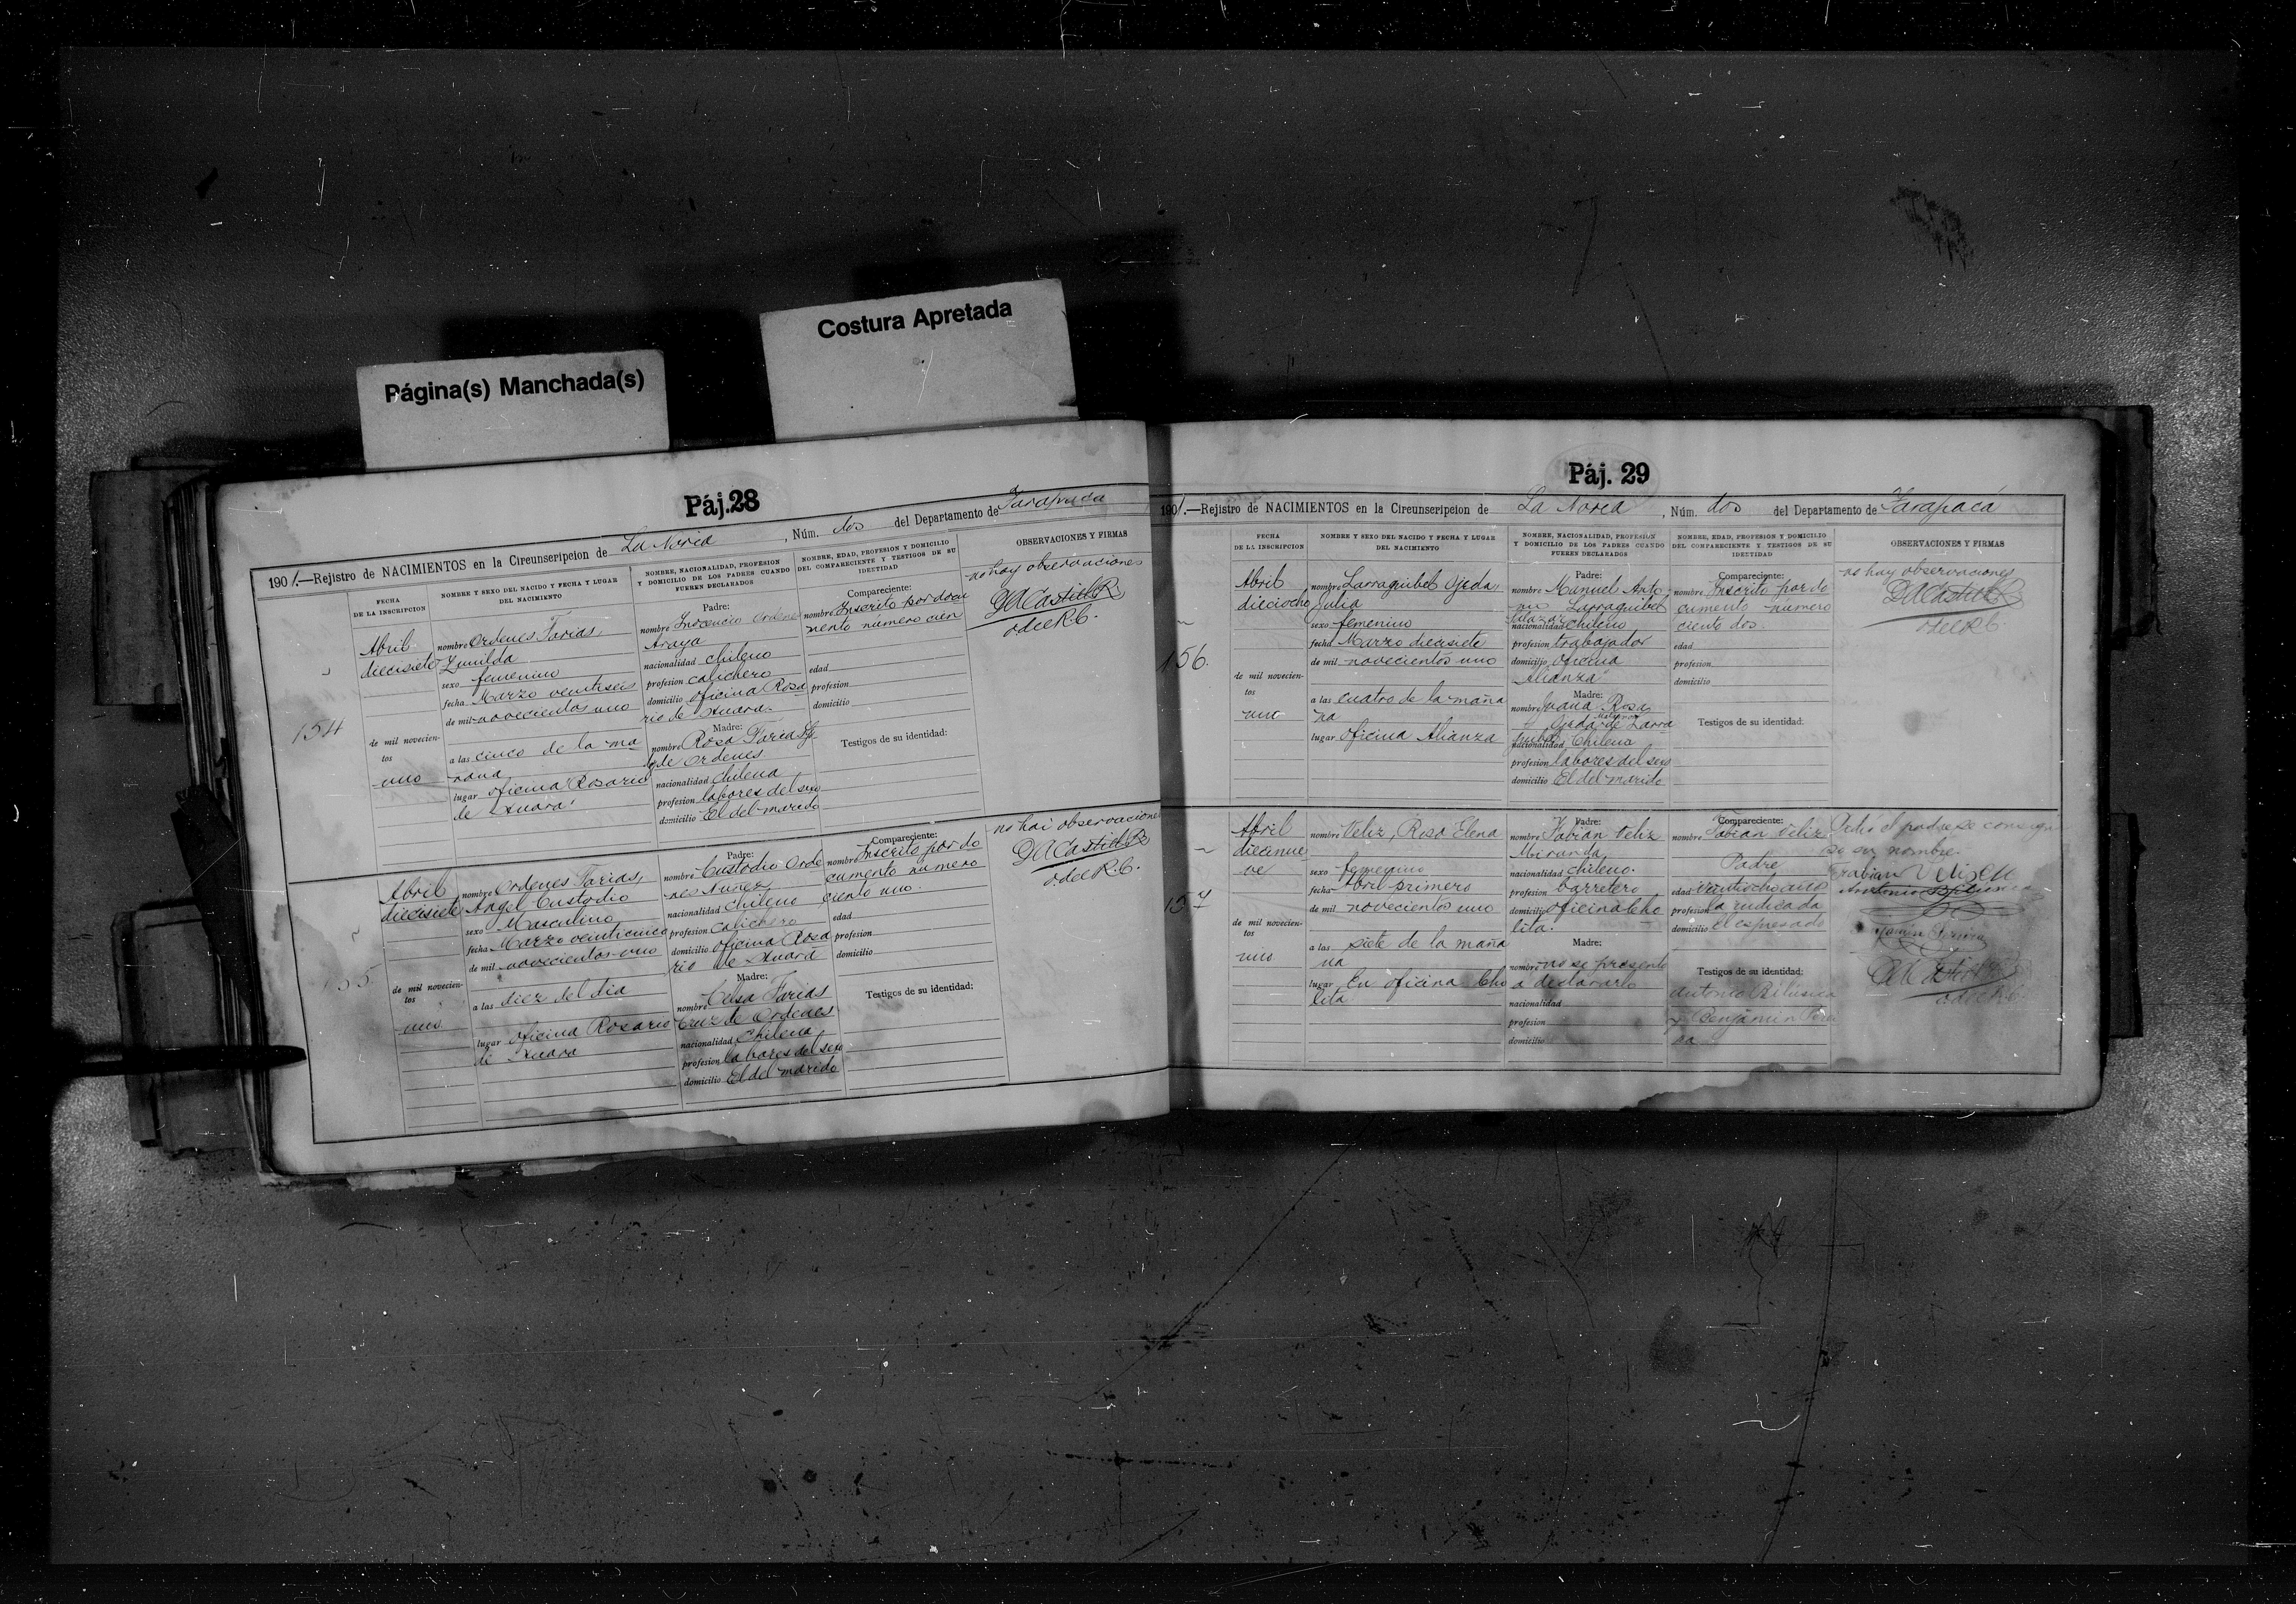 Costura Apretada
Página(s) Manchada(s)
Páj. 28
1901.—Rejistro de NACIMIENTOS en la Circunscripcion de La Noria, Núm. dos del Departamento de Tarapacá
FECHA
DE LA INSCRIPCION
NOMBRE Y SEXO DEL NACIDO Y FECHA Y LUGAR
DEL NACIMIENTO
NOMBRE, NACIONALIDAD, PROFESION
Y DOMICILIO DE LOS PADRES CUANDO
FUEREN DECLARADOS
NOMBRE, EDAD, PROFESION Y DOMICILIO
DEL COMPARECIENTE Y TESTIGOS DE SU
IDENTIDAD
OBSERVACIONES Y FIRMAS
154
Abril
diecisiete
de mil novecien-
tos
uno
nombre Ordenes Farias,
Zunilda
sexo femenino
fecha Marzo veintiseis
de mil novecientos uno
a las cinco de la ma
nana
lugar oficina Rosario
de Huara
Padre:
nombre Inocencio Ordene
Araya
nacionalidad chileno
profesion calichero
domicilio oficina Rosa
rio de Huara.
Madre:
nombre Rosa Farias
de Ordenes
nacionalidad chilena
profesion labores del sexo
domicilio El del marido
Compareciente:
nombre Inscrito por docu
mento numero cien
edad
profesion
domicilio
Testigos de su identidad:
no hay observaciones
DACastilloR
odelR.C.
155
Abril
diecisiete
de mil novecien-
tos
uno.
nombre Ordenes Farias,
Angel Custodio
sexo Masculino
fecha Marzo veinticinco
de mil novecientos uno
a las diez del dia
lugar oficina Rosario
de Huara
Padre:
nombre Custodio Orde
nes Nuñez
nacionalidad chileno
profesion calichero
domicilio oficina Rosa
rio de Huara
Madre:
nombre Celsa Farias
Cruz de Ordenes
nacionalidad Chilena
profesion labores del sexo
domicilio El del marido
Compareciente:
nombre Inscrito por do
cumento numero
ciento uno.
edad
profesion
domicilio
Testigos de su identidad:
no hai observaciones
DACastilloR
odelR.C.
Páj. 29
1901.—Rejistro de NACIMIENTOS en la Circunscripcion de La Noria, Núm. dos del Departamento de Tarapacá
FECHA
DE LA INSCRIPCION
NOMBRE Y SEXO DEL NACIDO Y FECHA Y LUGAR
DEL NACIMIENTO
NOMBRE, NACIONALIDAD, PROFESION
Y DOMICILIO DE LOS PADRES CUANDO
FUEREN DECLARADOS
NOMBRE, EDAD, PROFESION Y DOMICILIO
DEL COMPARECIENTE Y TESTIGOS DE SU
IDENTIDAD
OBSERVACIONES Y FIRMAS
156.
Abril
dieciocho
de mil novecien-
tos
uno
nombre Larraguibel Ojeda,
Julia
sexo femenino
fecha Marzo diecisiete
de mil novecientos uno
a las cuatro de la maña
na
lugar oficina Alianza
Padre:
nombre Manuel Anto
nio Larraguibel
Salazar
nacionalidad chileno
profesion trabajador
domicilio oficina
Alianza
Madre:
nombre Juana Rosa
Ojeda de Larra
nacionalidad Chilena
profesion labores del sexo
domicilio El del marido
Compareciente:
nombre Inscrito por do
cumento numero
ciento dos.
edad
profesion
domicilio
Testigos de su identidad:
no hay observaciones
DACastilloR
odelR.C
157
Abril
diecinue
ve
de mil novecien-
tos
uno
nombre Veliz, Rosa Elena
sexo femenino
fecha Abril primero
de mil novecientos uno
a las siete de la maña
na
lugar En oficina Cho
lita
Padre:
nombre Fabian Veliz
Miranda
nacionalidad chileno.
profesion barretero
domicilio oficina Cho
lita.
Madre:
nombre no se presento
a declararlo
nacionalidad
profesion
domicilio
Compareciente:
nombre Fabian Veliz
Padre
edad veintiocho años
profesion la indicada
domicilio el espresado
Testigos de su identidad:
Antonio
y Benjamin Perei
ra
Pidió el padre se consigna
se su nombre.
Frabian Velis M
Antonio
DACastilloR
odelR.C